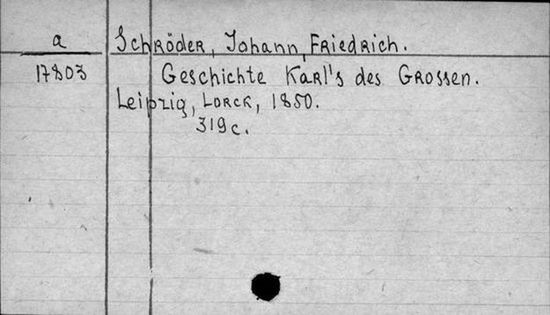 a
Schröder, Johann Friedrich.
17803
Geschichte Karl's des Grossen.
Leipzig, Lorck, 1850.
319 c.